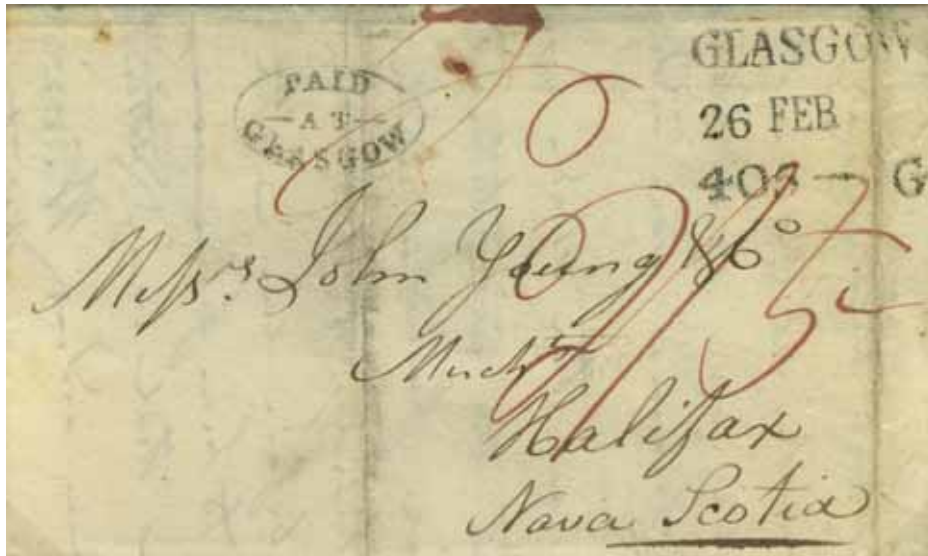 PAID
AT
GLASGOW
GLASGOW
26 FEB
403 — G
Messrs. John Young & Co
Mercht
Halifax
Nova Scotia